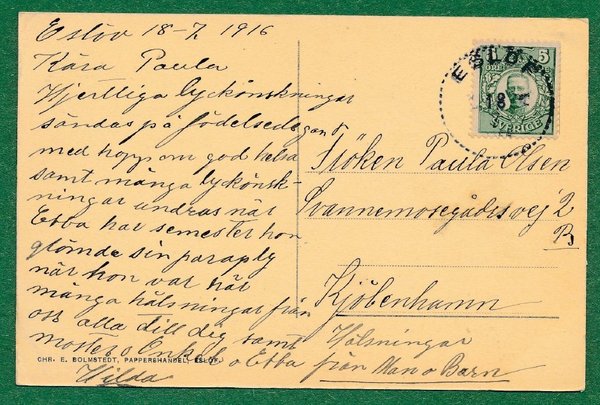 Eslöv 18-7 1916
Kära Paula
Hjertliga lyckönskningar
sändas på födelsedagen
med hopp om god helsa
samt många lyckönsk-
ningar undras när
Ebba har semester hon
glömde sin paraply
när hon var här
många hälsningar från
oss alla till dig samt
moster o Enk o Ebba
Hilda
CHR. E. BOLMSTEDT, PAPPERSHANDEL, ESLÖF.
ESLÖF
18
5
ÖRE
SVERIGE
Fröken Paula Olsen
Svannemosegårdsvej 2
Kjöbenhamn
Hälsningar
från Man o Barn